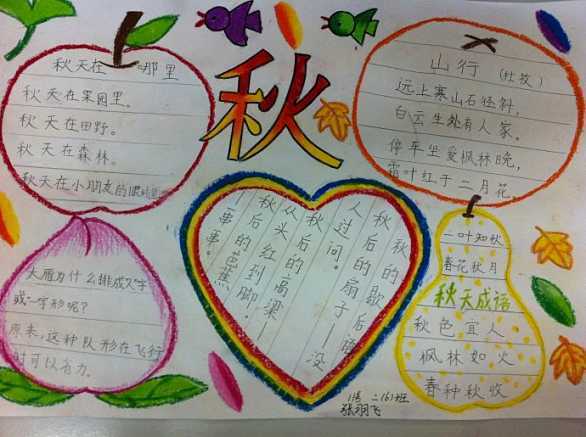 秋
秋天在哪里
秋天在果园里。
秋天在田野。
秋天在森林。
秋天在小朋友的眼
山行（杜牧）
远上寒山石径斜，
白云生处有人家。
停车坐爱枫林晚，
霜叶红于二月花。
大雁为什么排成人字
或一字形呢？
原来，这种队形在飞行
时可以省力。
秋的歇后语
秋后的扇子—没
人过问。
秋后的高粱—
从头红到脚。
秋后的芭蕉，
一事事。
一叶知秋
春花秋月
秋天成语
秋色宜人
枫林如火
春种秋收
1号 二(6)班
张羽飞